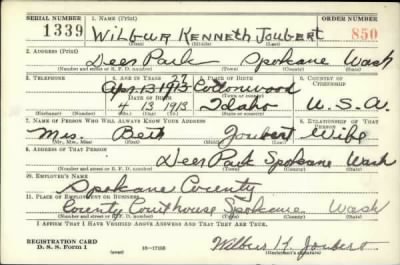 SERIAL NUMBER 1. NAME (Print) ORDER NUMBER
1339 Wilbur Kenneth Joubert 850
(First) (Middle) (Last)
2. ADDRESS (Print)
Deer Park Spokane Wash
(Number and street or R. F. D. number) (Town) (County) (State)
3. TELEPHONE 4. AGE IN YEARS 5. PLACE OF BIRTH 6. COUNTRY OF CITIZENSHIP
27
Apr. 13 1913 Cottonwood
DATE OF BIRTH (Town or county)
4 13 1913 Idaho U.S.A.
(Exchange) (Number) (Mo.) (Day) (Yr.) (State or country)
7. NAME OF PERSON WHO WILL ALWAYS KNOW YOUR ADDRESS 8. RELATIONSHIP OF THAT PERSON
Mrs. Beth Joubert Wife
(Mr., Mrs., Miss) (First) (Middle) (Last)
9. ADDRESS OF THAT PERSON
Deer Park Spokane Wash
(Number and street or R. F. D. number) (Town) (County) (State)
10. EMPLOYER'S NAME
Spokane County
11. PLACE OF EMPLOYMENT OR BUSINESS
County Courthouse Spokane Wash
(Number and street or R. F. D. number) (Town) (County) (State)
I AFFIRM THAT I HAVE VERIFIED ABOVE ANSWERS AND THAT THEY ARE TRUE.
REGISTRATION CARD
D. S. S. Form 1 (over) 16-17105 Wilbur K. Joubert
(Registrant's signature)